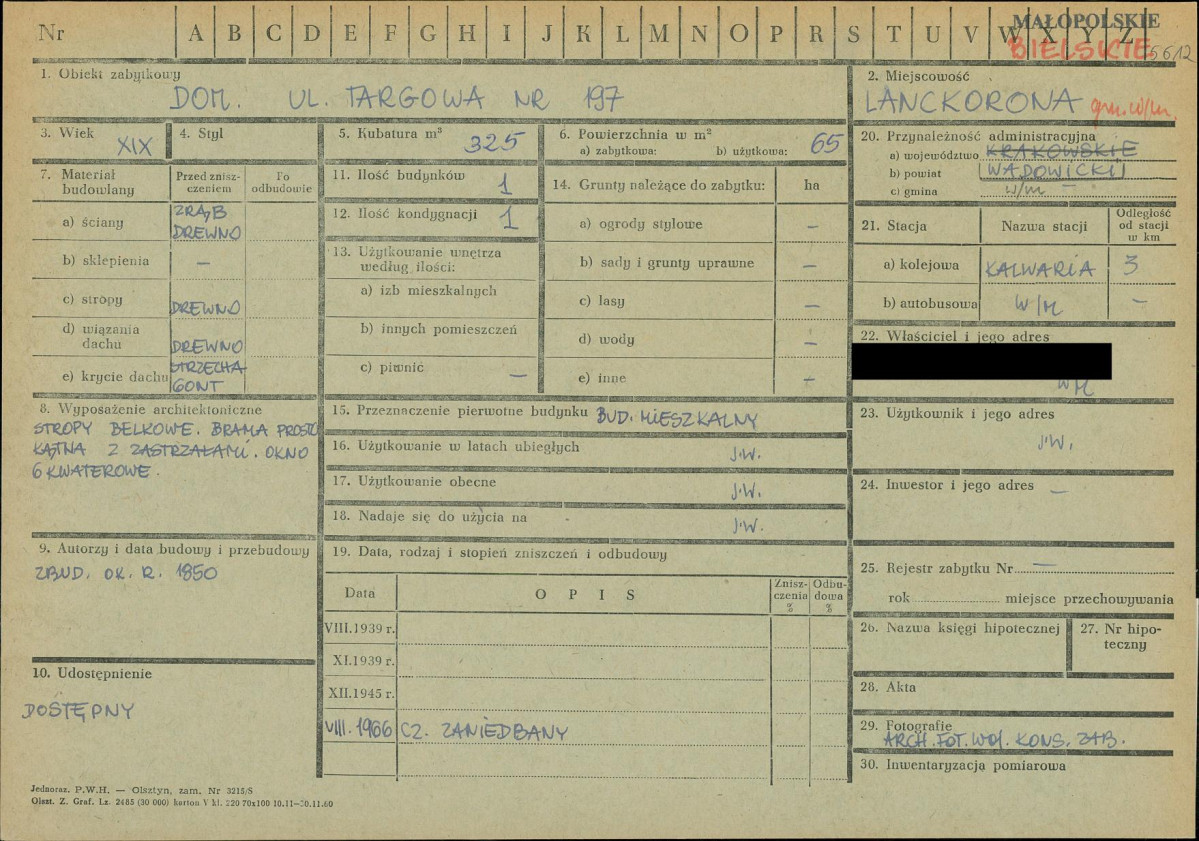 Nr A B C D E F G H I J K L M N O P R S T U V W X Y Z
MAŁOPOLSKIE
BIELSKIE 5612
1. Obiekt zabytkowy
DOM. UL. TARGOWA NR 197
2. Miejscowość
LANCKORONA gm. w/m.
3. Wiek XIX
4. Styl
5. Kubatura m³ 325
6. Powierzchnia w m²
a) zabytkowa: b) użytkowa: 65
20. Przynależność administracyjna
a) województwo KRAKOWSKIE
b) powiat WADOWICKI
c) gmina w/m –
7. Materiał budowlany
Przed zniszczeniem
Po odbudowie
a) ściany ZRĄB DREWNO
b) sklepienia –
c) stropy DREWNO
d) wiązania dachu DREWNO
e) krycie dachu STRZECHA GONT
11. Ilość budynków 1
12. Ilość kondygnacji 1
13. Użytkowanie wnętrza
według ilości:
a) izb mieszkalnych
b) innych pomieszczeń
c) piwnic –
14. Grunty należące do zabytku: ha
a) ogrody stylowe –
b) sady i grunty uprawne –
c) lasy –
d) wody –
e) inne –
21. Stacja
Nazwa stacji
Odległość od stacji w km
a) kolejowa KALWARIA 3
b) autobusowa W/M –
22. Właściciel i jego adres
W/M
8. Wyposażenie architektoniczne
STROPY BELKOWE. BRAMA PROSTO
KĄTNA Z ZASTRZAŁAMI. OKNO
6 KWATEROWE.
15. Przeznaczenie pierwotne budynku BUD. MIESZKALNY
16. Użytkowanie w latach ubiegłych J.W.
17. Użytkowanie obecne J.W.
18. Nadaje się do użycia na J.W.
23. Użytkownik i jego adres
J.W.
24. Inwestor i jego adres –
9. Autorzy i data budowy i przebudowy
ZBUD. OK. R. 1850
19. Data, rodzaj i stopień zniszczeń i odbudowy
Data
O P I S
Zniszczenia %
Odbudowa %
VIII.1939 r.
XI.1939 r.
XII.1945 r.
VIII. 1966 CZ. ZANIEDBANY
25. Rejestr zabytku Nr –
rok miejsce przechowywania
26. Nazwa księgi hipotecznej
27. Nr hipoteczny
28. Akta
29. Fotografie
ARCH. FOT. WOJ. KONS. ZAB.
30. Inwentaryzacja pomiarowa
10. Udostępnienie
DOSTĘPNY
Jednoraz. P.W.H. — Olsztyn, zam. Nr 3215/S
Olszt. Z. Graf. Lz. 2485 (30 000) karton V kl. 220 70x100 10.11—30.11.60